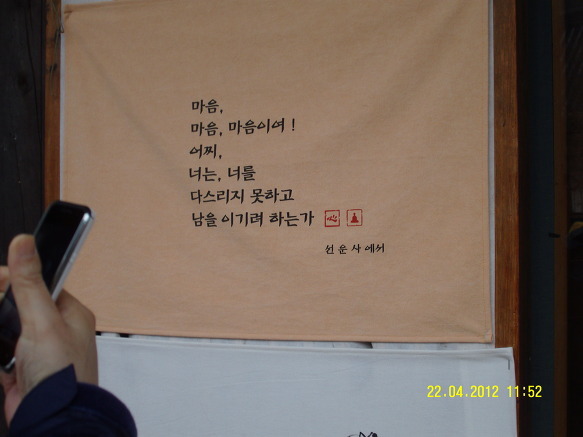 마음,
마음, 마음이여 !
어찌,
너는, 너를
다스리지 못하고
남을 이기려 하는가
선운사에서
22.04.2012 11:52